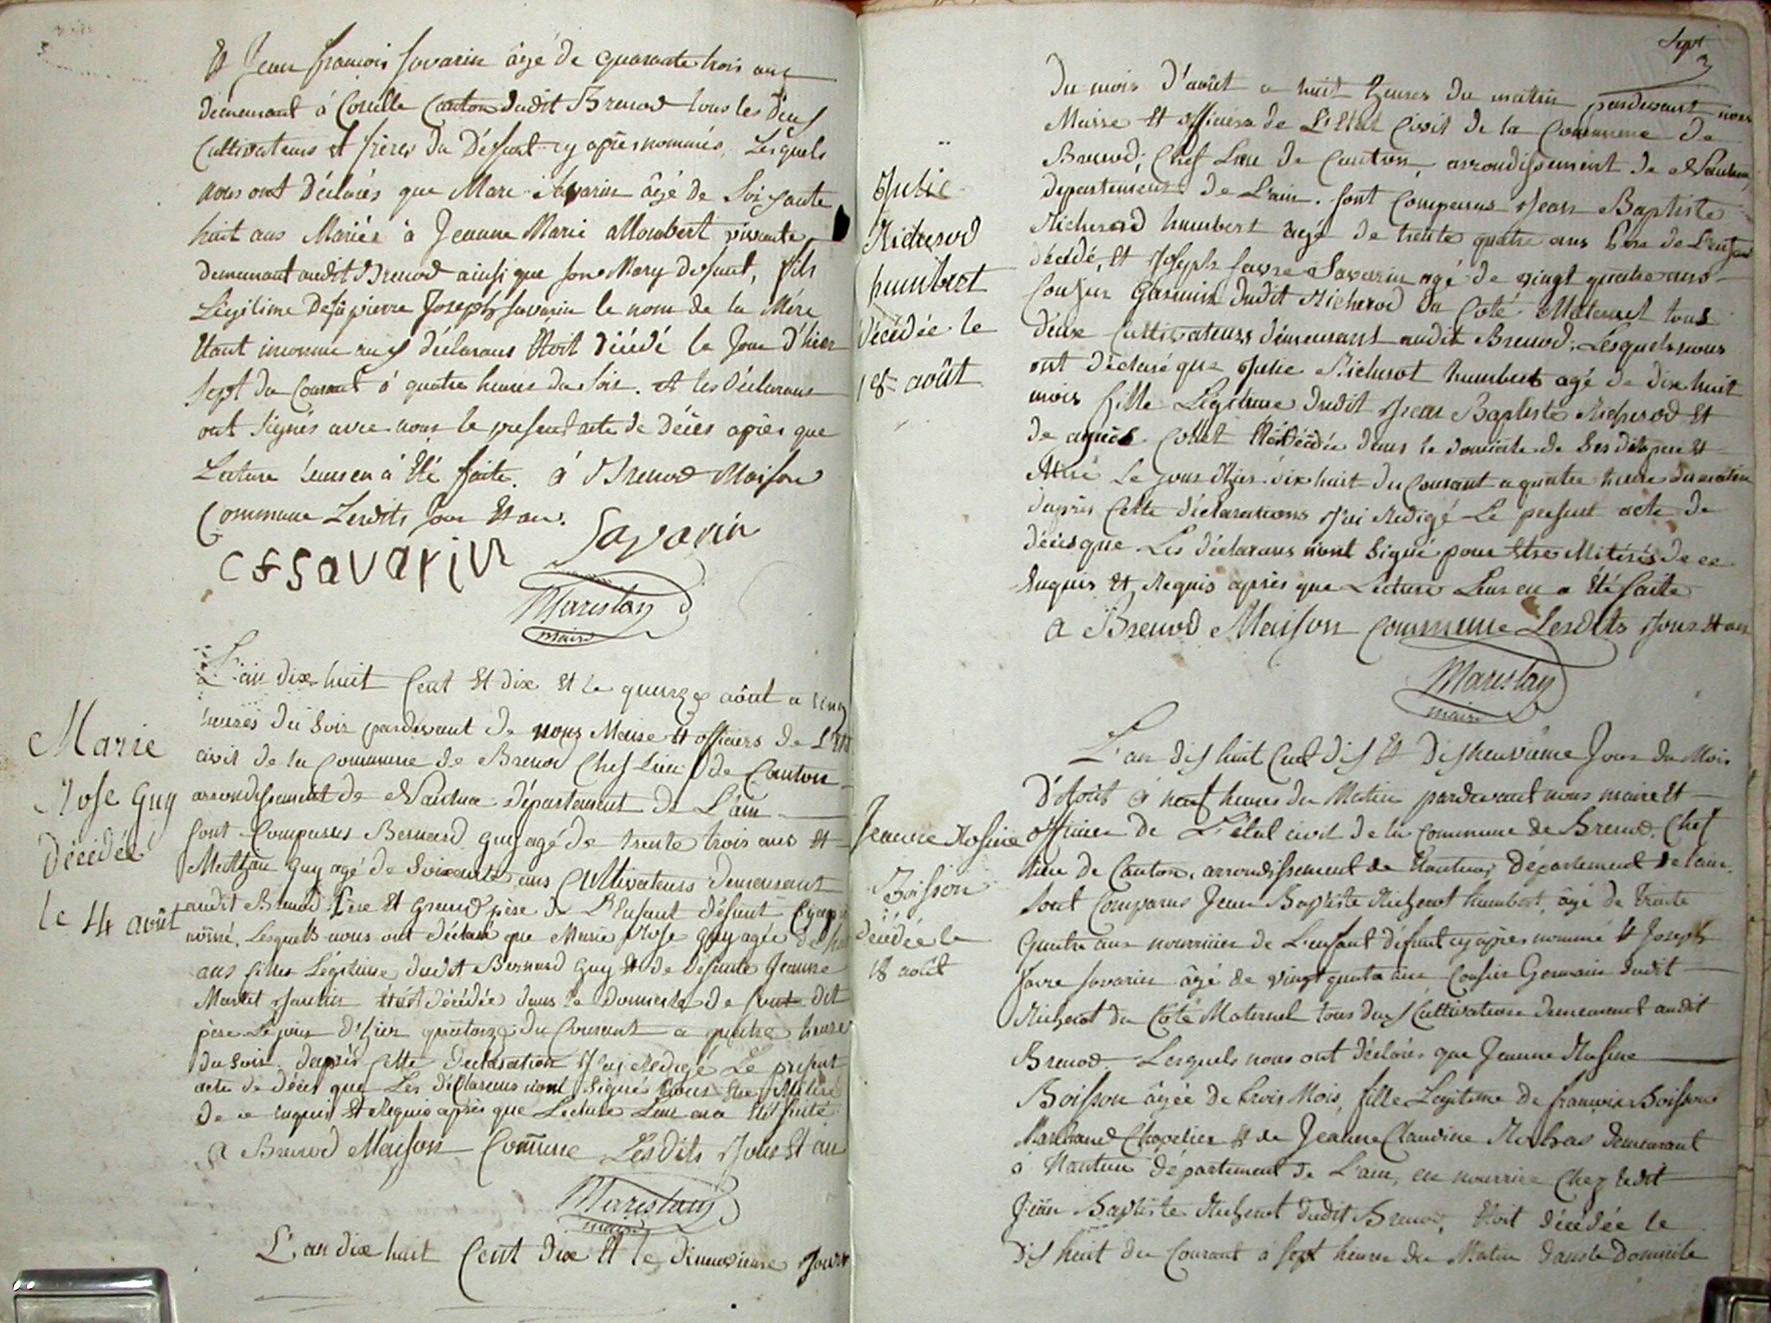 Et Jean françois Savarin âgé de quarante trois ans
demeurant à Corcelle Canton dudit Brenod tous les deux
Cultivateurs et frères du Défunt cy après nommés, Lesquels
nous ont déclarés que Marc Savarin âgé de Soixante
huit ans Mariés à Jeanne Marie allombert vivante
demeurant audit Brenod ainsi que son Mary defunt, fils
Légitime De pierre Joseph Savarin le nom de la Mère
Etant inconnu aux déclarans Etoit décédé le Jour d'hier
Sept du Courant à quatre heures du Soir. et les déclarans
ont signés avec nous le présent acte de Décès après que
Lecture leur en à Eté faite. à Brenod Maison
Commune Lesdits Jour Et an.
CFSavarin Savarin
Marestan
maire
L'an dix huit Cent Et dix Et le quinze août a cinq
heures du Soir pardevant de nous Maire Et officiers de L'Etat
civil de la Commune de Brenod Chef Lieu de Canton
arrondissement de Nantua département de L'ain
Sont Comparus Bernard guy agé de trente trois ans Et
guy agé de Soixante ans Cultivateurs demeurant
audit Brenod Père Et Grand père de L'Enfant défunt Cy après
nommé, Lesquels nous ont déclaré que Marie Rose guy agée de huit
ans fille Légitime dudit Bernard Guy Et de defunte Jeanne
était décédée dans le domicile de dit
père Le jour D'hier quatorze du Courant a quatre heure
du Soir. daprès Cette declaration J'ai Rédigé Le présent
acte de décès que Les déclarans n'ont Signé pour être Illitéré
de ce enquis Et Requis après que Lecture Leur en a Eté faite
A Brenod Maison Commune Lesdits Jour Et an
Marestan
maire
L'an dix huit Cent dix Et le dixneuvieme Jour
Marie
Rose Guy
Décédée
le 14 août
Sept
du mois d'août a huit heures du matin pardevant nous
Maire Et officiers de L'Etat Civil de la Commune de
Brenod, Chef Lieu de Canton, arrondissement de Nantua,
departement de L'ain. Sont Comparus Jean Baptiste
Richerod humbert agé de trente quatre ans Père de L'enfant
décédé, Et Joseph favre Savarin agé de vingt quatre ans
Cousin Germain dudit Richerod du Coté Maternel tous
deux Cultivateurs demeurant audit Brenod, Lesquels nous
ont déclaré que Julie Richerot humbert agé de dix huit
mois fille Légitime dudit Jean Baptiste Richerod Et
de agnès Collet décédée dans le domicile de Ses dits père Et
Mère Le jour d'hier dix huit du Courant a quatre heure du matin
daprès Cette déclarations J'ai Redigé Le présent acte de
décès que Les déclarans n'ont Signé pour être Illitérés de ce
Enquis Et Requis après que Lecture Leur en a Eté faite
A Brenod Maison Commune Lesdits Jour Et an
Marestan
maire
Julie
Richerod
humbert
décédée le
18 août
L'an dix huit Cent dix Et dixneuvième Jour du Mois
D'Août à neuf heures du Matin pardevant nous maire Et
officier de L'état civil de la Commune de Brenod, Chef
lieu de Canton, arrondissement de Nantua, Département de lain,
Sont Comparus Jean Baptiste Richerot humbert, âgé de trente
quatre ans nourricier de L'enfant défunt cy après nommé Et Joseph
favre Savarin âgé de vingt quatre ans, Cousin Germain dudit
Richerot du Côté Maternel tous deux Cultivateurs demeurant audit
Brenod. Lesquels nous ont déclarés que Jeanne Rosine
Boisson âgée de trois Mois, fille Légitime de françois Boisson
Marchand Chapelier Et de Jeanne Claudine demeurant
à Nantua département de L'ain, en nourrice Chez ledit
Jean Baptiste Richerot dudit Brenod, Etoit décédée le
dix huit du Courant à Sept heures du Matin dans le Domicile
Jeanne Rosine
Boisson
décédée le
18 août